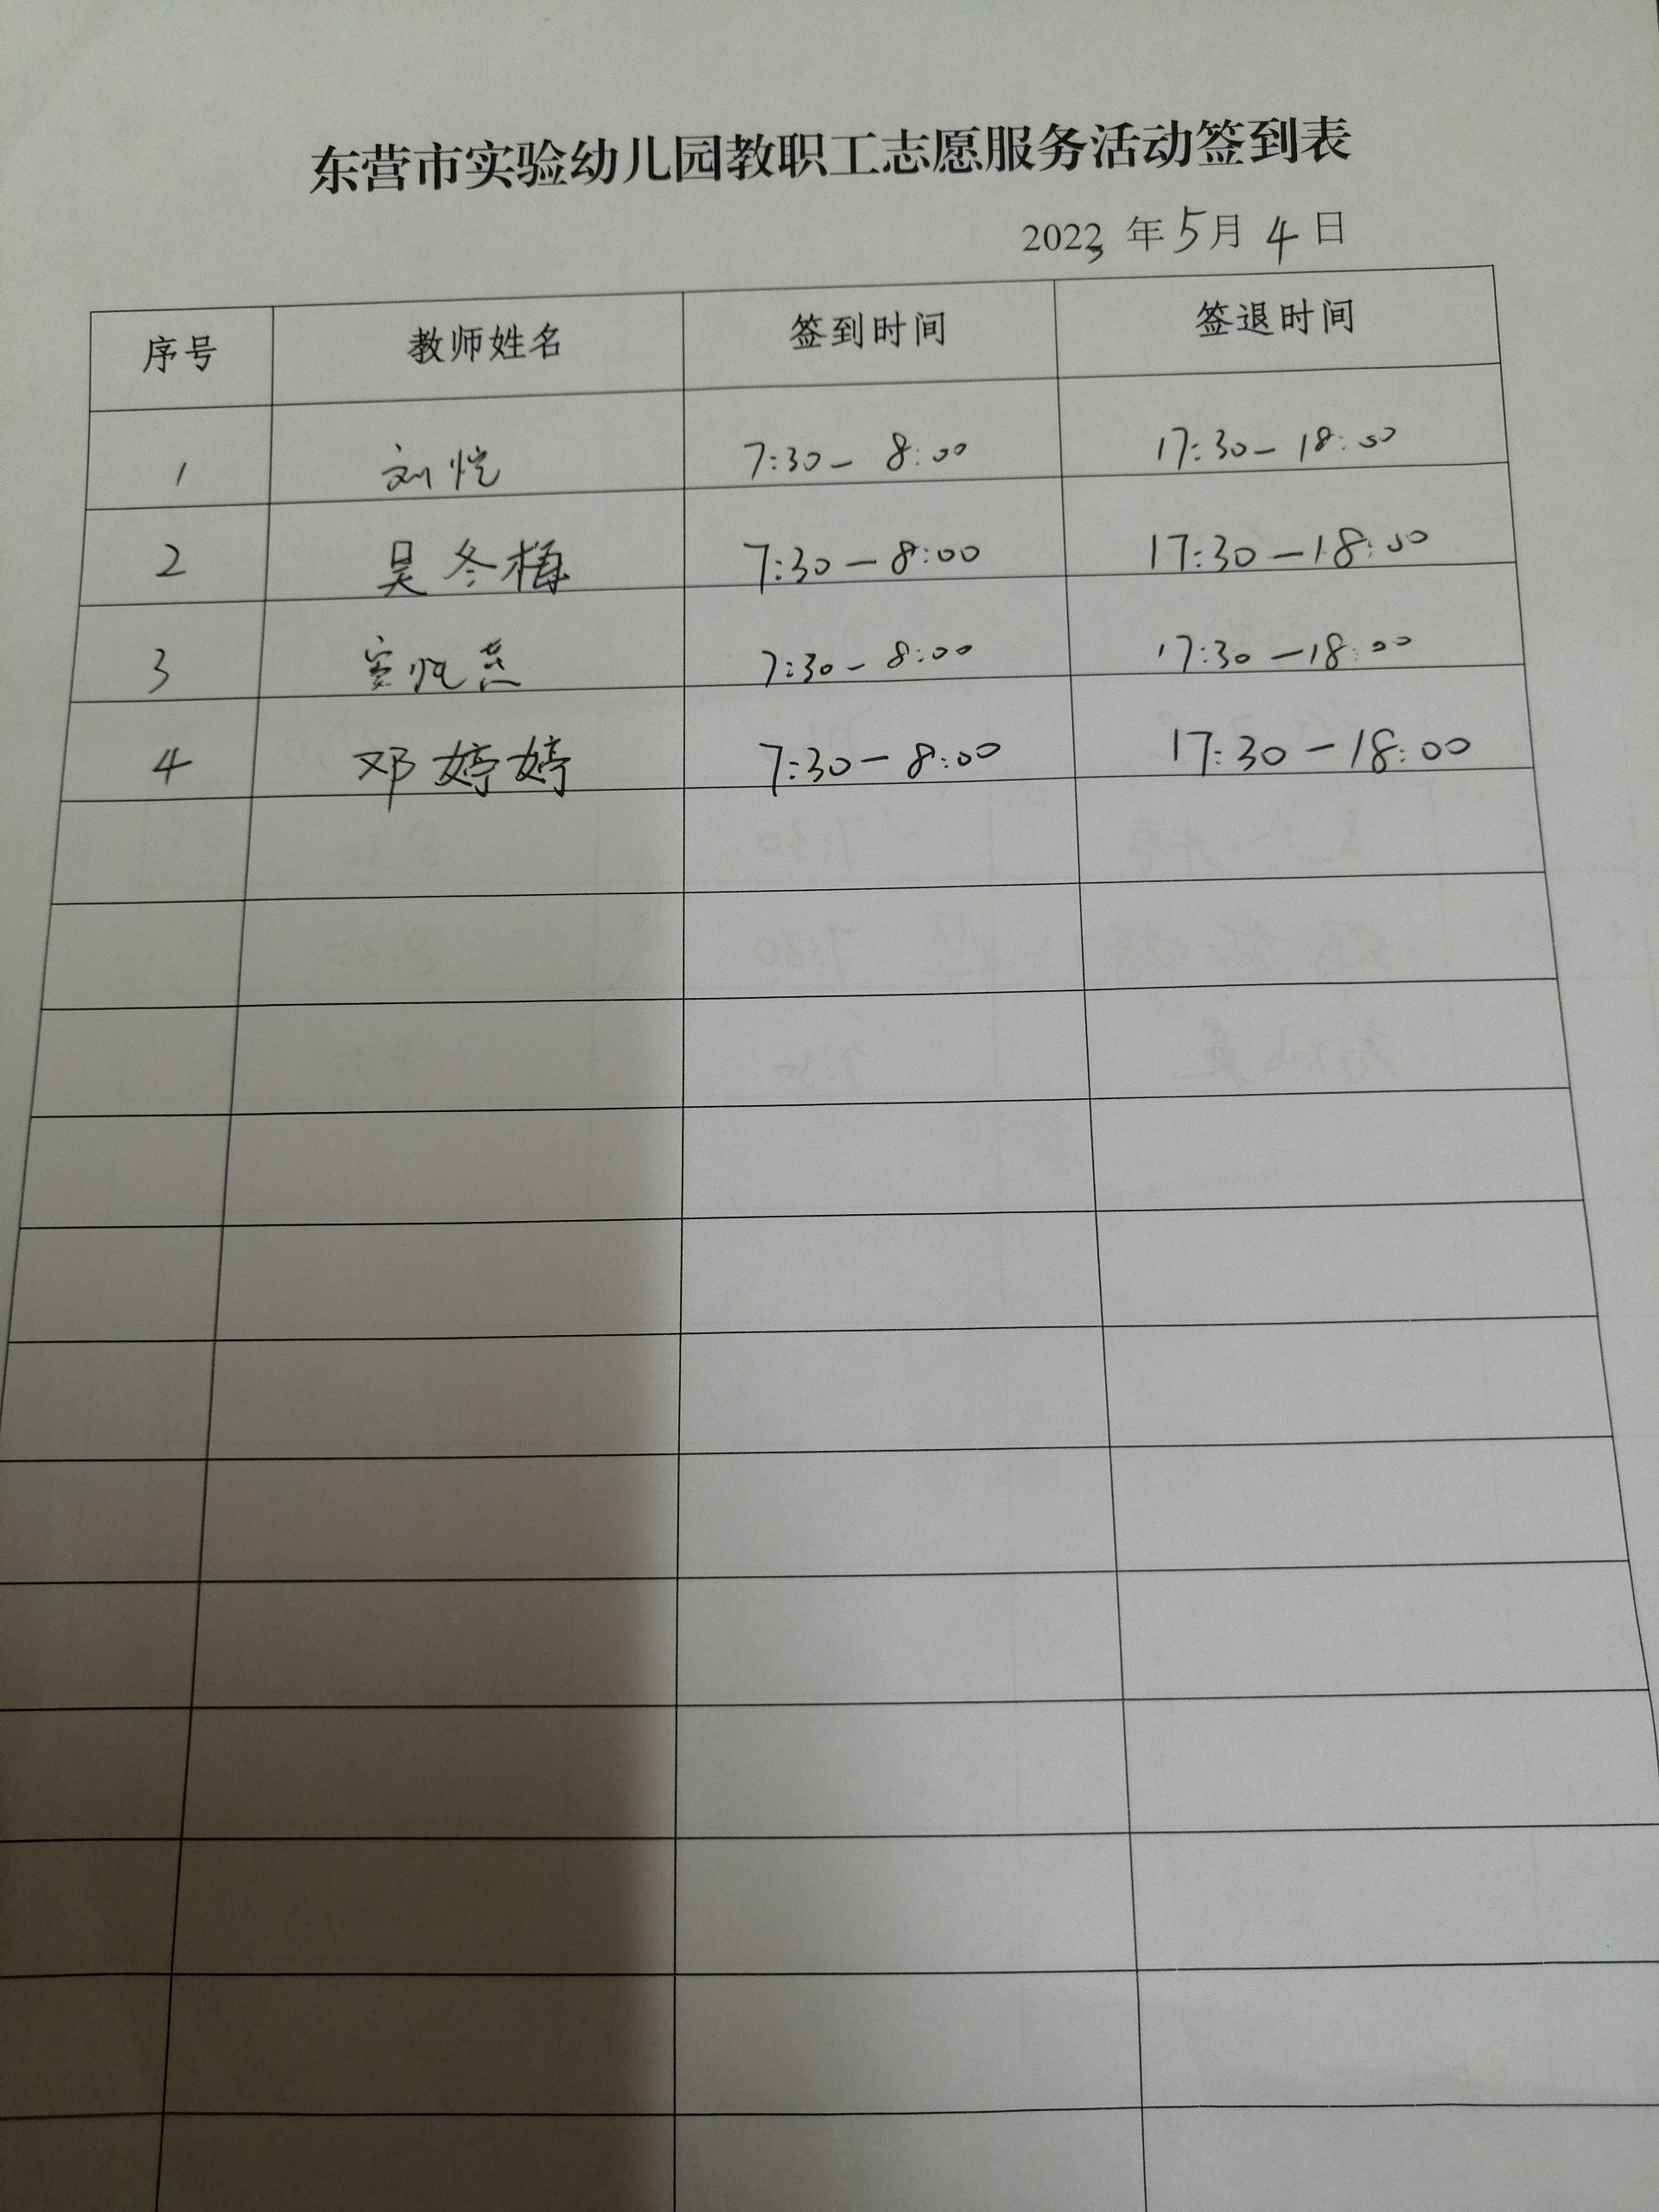 东营市实验幼儿园教职工志愿服务活动签到表
2023 年 5 月 4 日
序号 教师姓名 签到时间 签退时间
1 刘恺 7:30 - 8:00 17:30 - 18:00
2 吴冬梅 7:30 - 8:00 17:30 - 18:00
3 7:30 - 8:00 17:30 - 18:00
4 邓婷婷 7:30 - 8:00 17:30 - 18:00